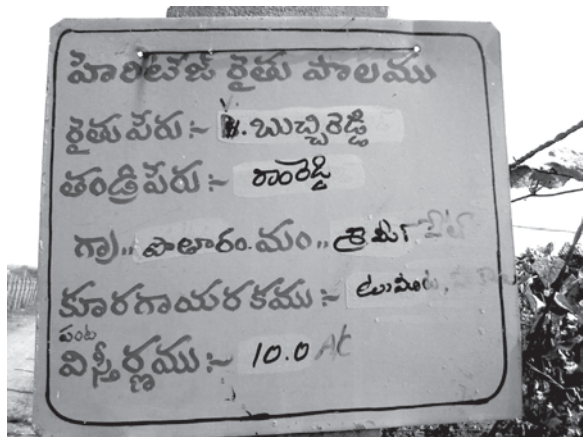 హెరిటేజ్ రైతు పొలము
రైతు పేరు :- .బుచ్చిరెడ్డి
తండ్రి పేరు :- రాంరెడ్డి
గ్రా,, పొలారం. మం,,
కూరగాయ రకము :- టమాట,
పంట
విస్తీర్ణము :- 10.0 AC